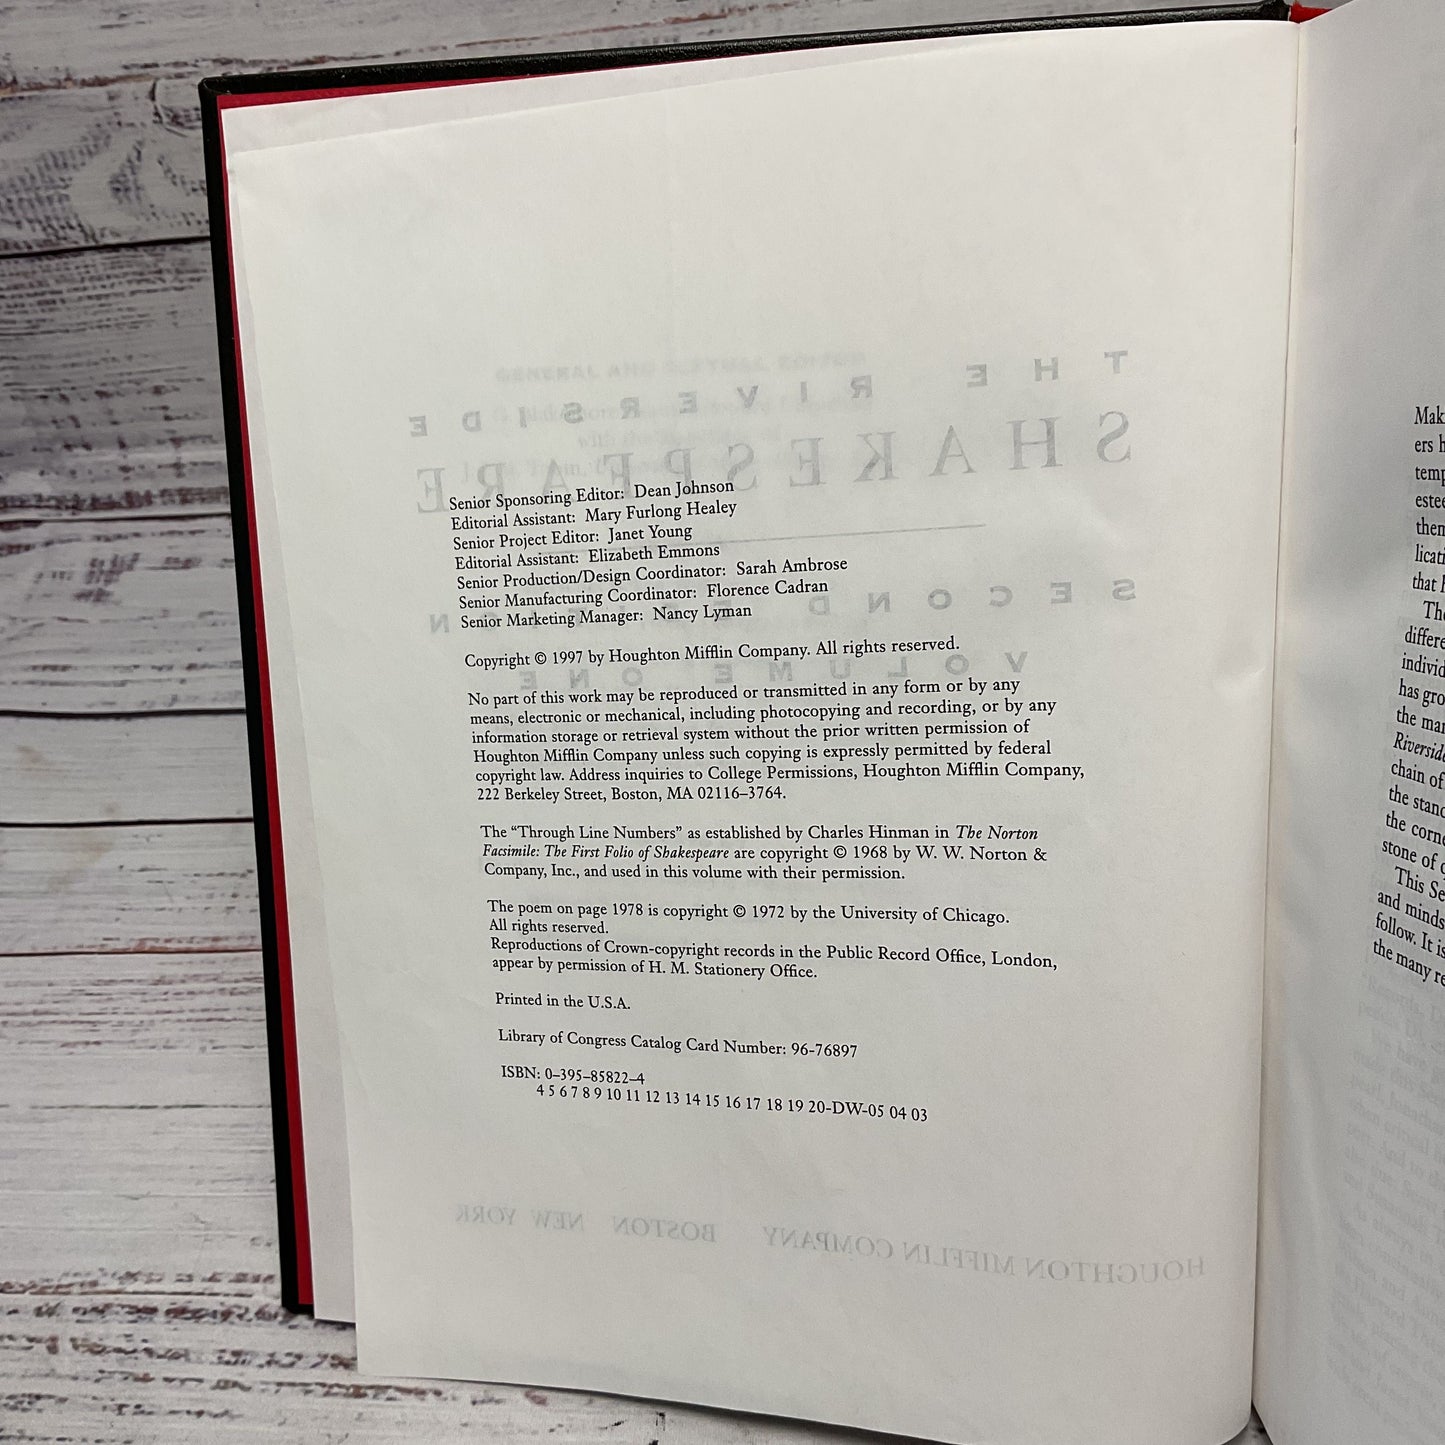 Senior Sponsoring Editor: Dean Johnson
Editorial Assistant: Mary Furlong Healey
Senior Project Editor: Janet Young
Editorial Assistant: Elizabeth Emmons
Senior Production/Design Coordinator: Sarah Ambrose
Senior Manufacturing Coordinator: Florence Cadran
Senior Marketing Manager: Nancy Lyman
Copyright © 1997 by Houghton Mifflin Company. All rights reserved.
No part of this work may be reproduced or transmitted in any form or by any
means, electronic or mechanical, including photocopying and recording, or by any
information storage or retrieval system without the prior written permission of
Houghton Mifflin Company unless such copying is expressly permitted by federal
copyright law. Address inquiries to College Permissions, Houghton Mifflin Company,
222 Berkeley Street, Boston, MA 02116–3764.
The “Through Line Numbers” as established by Charles Hinman in The Norton
Facsimile: The First Folio of Shakespeare are copyright © 1968 by W. W. Norton &
Company, Inc., and used in this volume with their permission.
The poem on page 1978 is copyright © 1972 by the University of Chicago.
All rights reserved.
Reproductions of Crown-copyright records in the Public Record Office, London,
appear by permission of H. M. Stationery Office.
Printed in the U.S.A.
Library of Congress Catalog Card Number: 96-76897
ISBN: 0–395–85822–4
4 5 6 7 8 9 10 11 12 13 14 15 16 17 18 19 20-DW-05 04 03
THE RIVERSIDE
SHAKESPEARE
SECOND EDITION
VOLUME ONE
HOUGHTON MIFFLIN COMPANY BOSTON NEW YORK
ers h
temp
estee
them
licati
that
The
differe
individ
has gro
the mar
Riverside
chain of
the stand
the corne
stone of
This Se
and minds
follow. It is
the many re